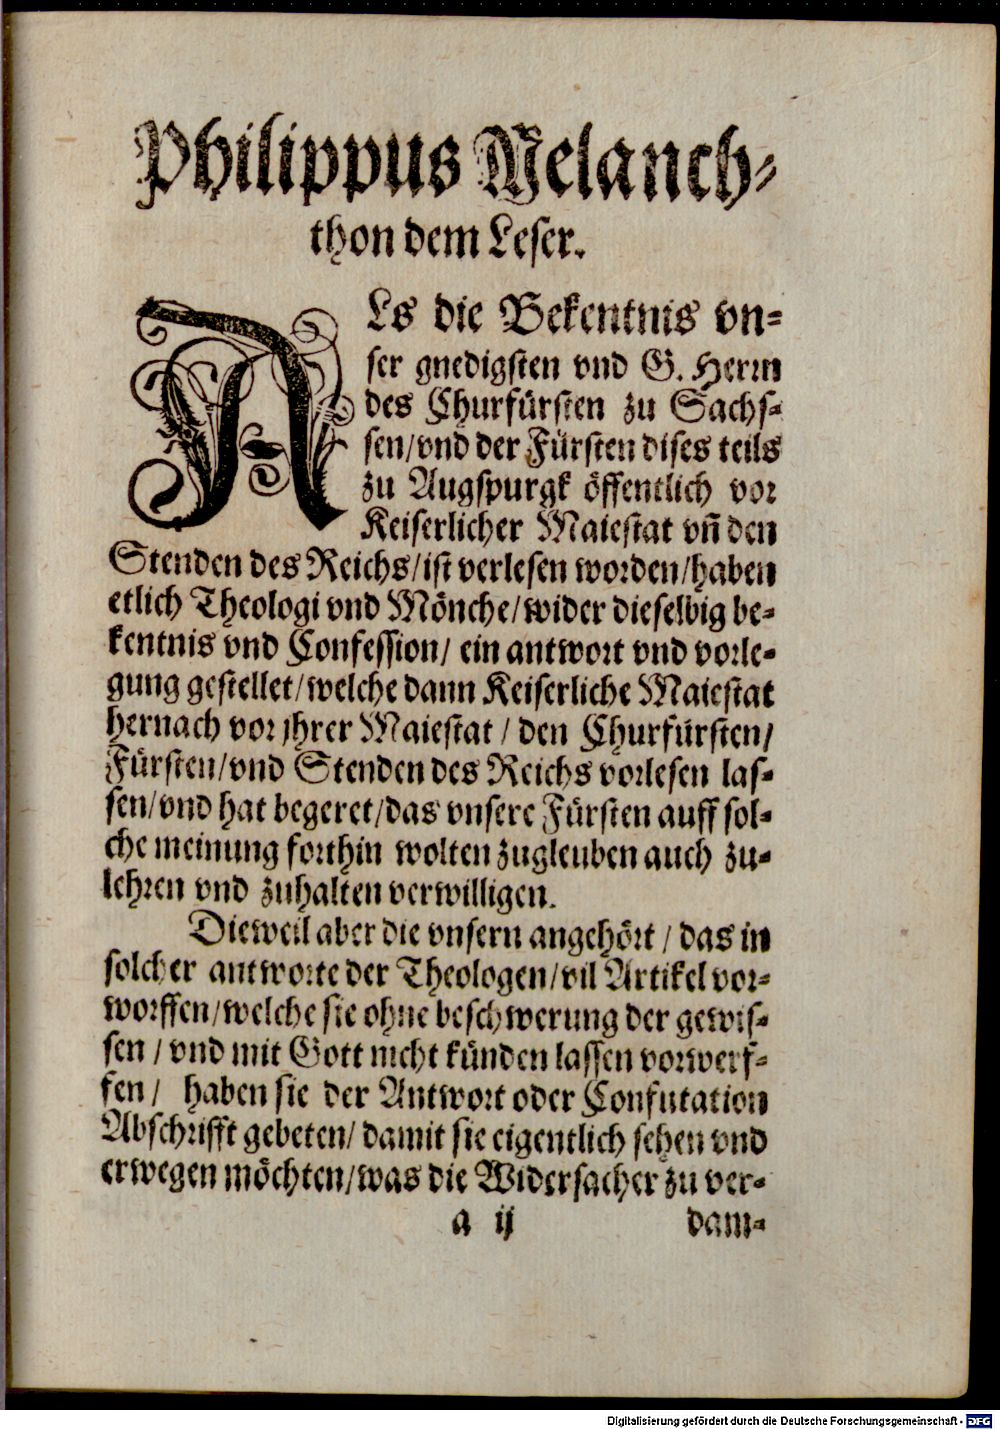 Philippus Melanch⸗
thon dem Leser.
ALs die Bekentnis vn⸗
ser gnedigsten vnd G. Herrn
des Churfürsten zu Sachs⸗
sen/vnd der Fürsten dises teils
zu Augspurgk öffentlich vor
Keiserlicher Maiestat vn̄ den
Stenden des Reichs/ist verlesen worden/haben
etlich Theologi vnd Mönche/wider dieselbig be⸗
kentnis vnd Confession/ ein antwort vnd vorle⸗
gung gestellet/welche dann Keiserliche Maiestat
hernach vor jhrer Maiestat/ den Churfürsten/
Fürsten/vnd Stenden des Reichs vorlesen las⸗
sen/vnd hat begeret/das vnsere Fürsten auff sol⸗
che meinung forthin wolten zugleuben auch zu⸗
lehren vnd zuhalten verwilligen.
Dieweil aber die vnsern angehört/ das in
solcher antworte der Theologen/vil Artikel vor⸗
worffen/welche sie ohne beschwerung der gewis⸗
sen/ vnd mit Gott nicht künden lassen vorwerf⸗
fen/ haben sie der Antwort oder Confutation
Abschrifft gebeten/ damit sie eigentlich sehen vnd
erwegen möchten/was die Widersacher zu ver⸗
a ij dam⸗
Digitalisierung gefördert durch die Deutsche Forschungsgemeinschaft - DFG